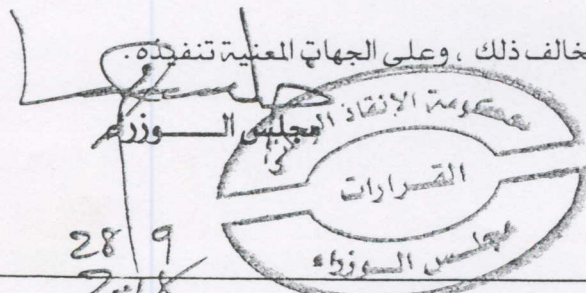 خالف ذلك ، وعلى الجهات المعنية تنفيذه .
مجلس الــوزراء
حكومة الإنقاذ
القــرارات
مجلس الــوزراء
28 9